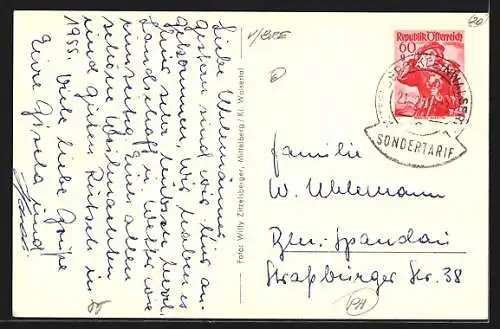 Liebe Uhlemänner
gestern sind wir hier an-
gekommen, wir haben es
hier sehr hübsch bezgl.
Landschaft u. Wetter wie
Euch allen
schöne Weihnachten
und guten Rutsch in
1955. Viele liebe Grüße
Eure Gisela und
Foto: Willy Zitzelsberger, Mittelberg / Kl. Walsertal
Republik Österreich
60
SONDERTARIF
Familie
W. Uhlemann
Bln.-Spandau
Straßburger Str. 38
20
PA